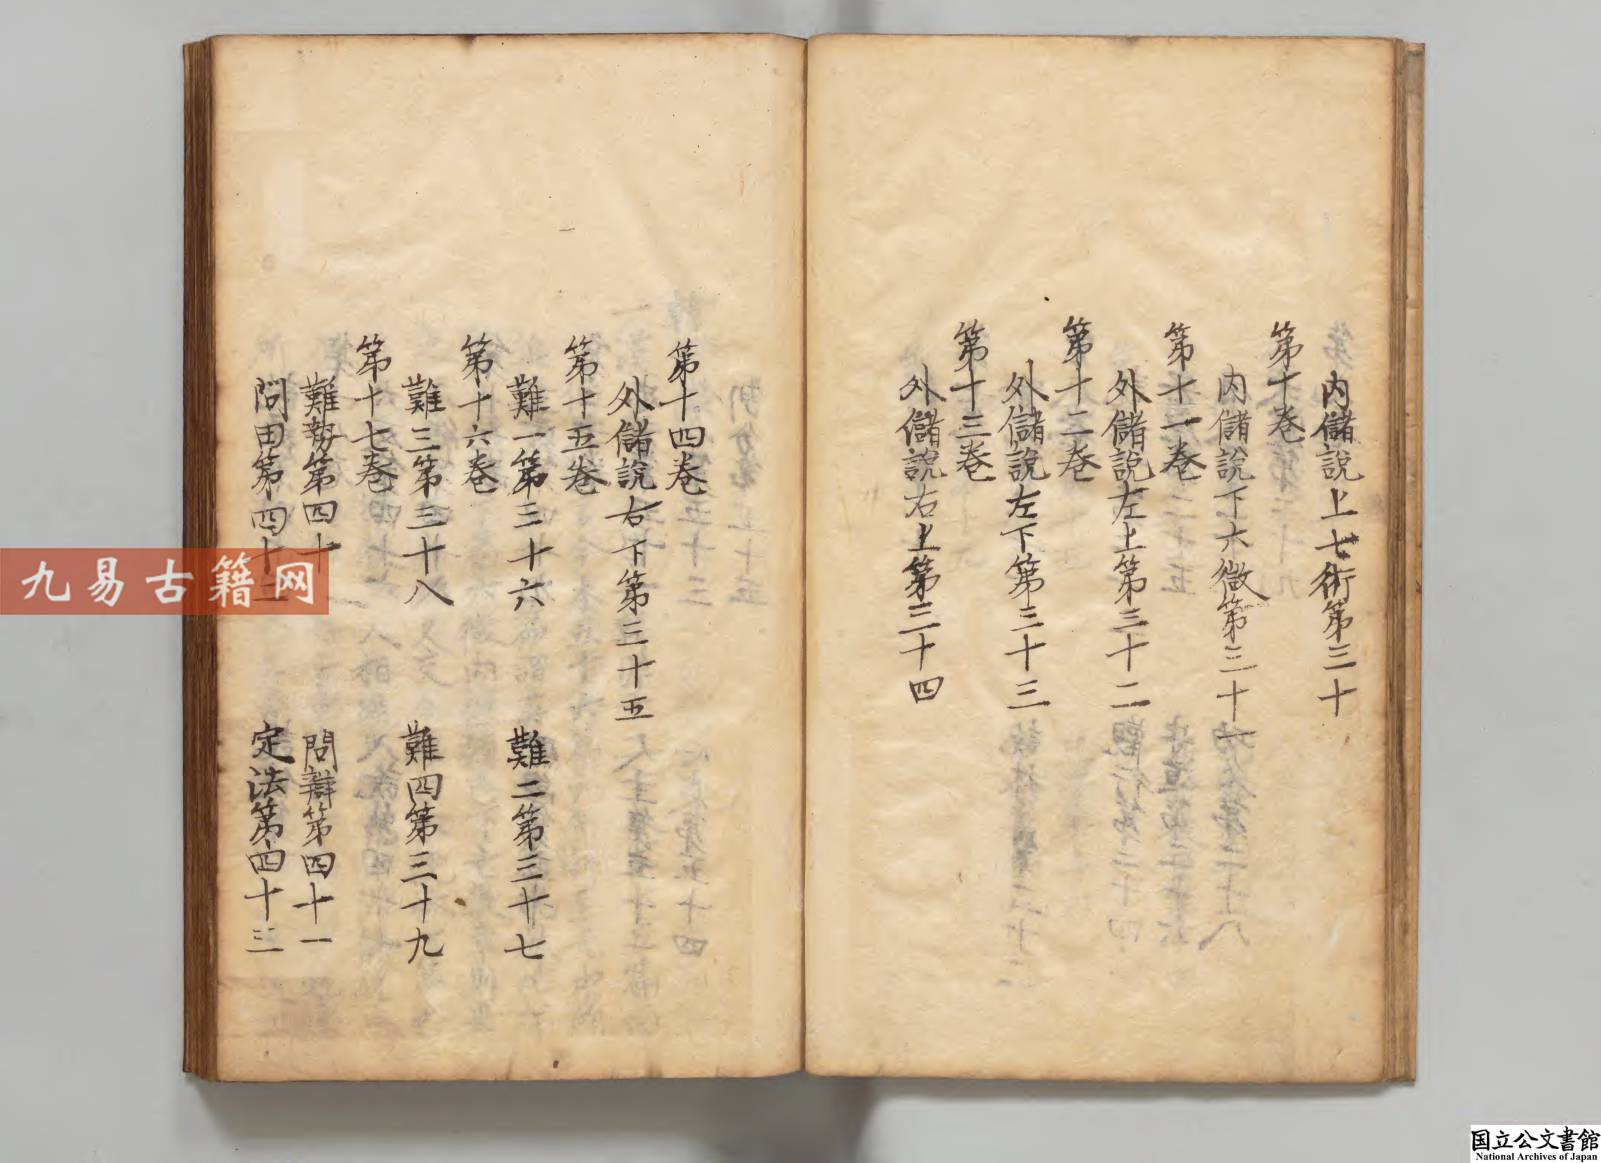 内儲說上七術第三十
第十卷
内儲說下六微第三十一
第十一卷
外儲說左上第三十二
第十二卷
外儲說左下第三十三
第十三卷
外儲說右上第三十四
第十四卷
外儲說右下第三十五
第十五卷
難一第三十六 難二第三十七
第十六卷
難三第三十八 難四第三十九
第十七卷
難勢第四十 問辯第四十一
問田第四十二 定法第四十三
九易古籍网
国立公文書館
National Archives of Japan